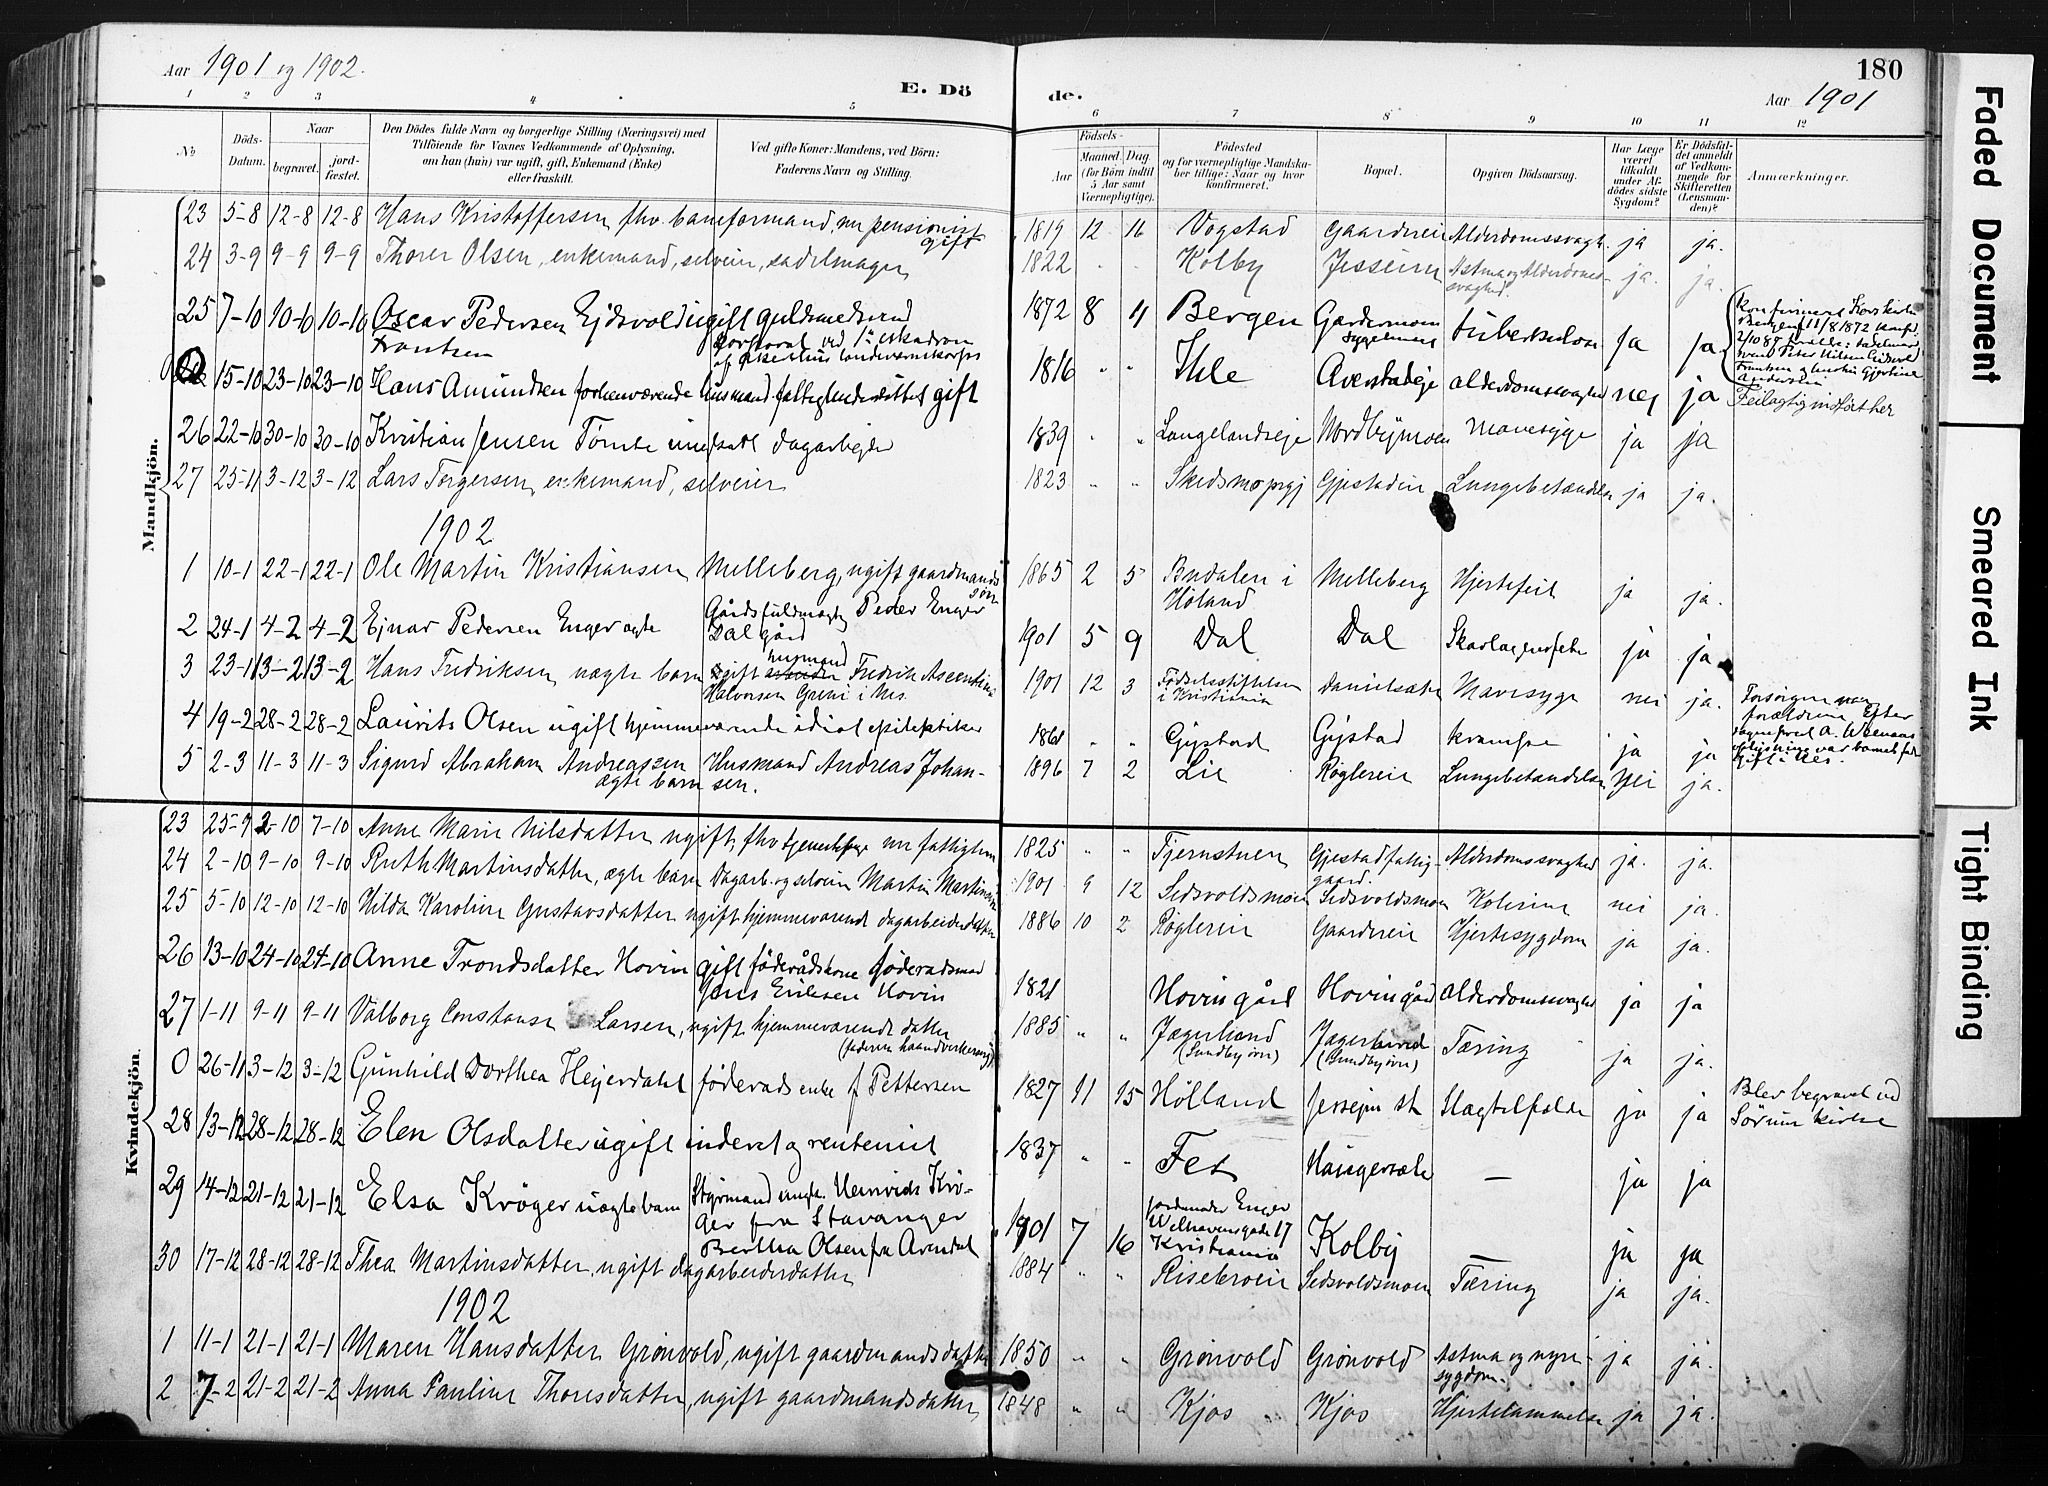 Aar 1901 og 1902.
E. Dö
de.
180
Aar 1901
1 2 3 4 5 6 7 8 9 10 11 12
No
Döds-
Datum.
Naar
begravet.
jord-
fæstet.
Den Dödes fulde Navn og borgerlige Stilling (Næringsvei) med
Tilföiende for Voxnes Vedkommende af Oplysning,
om han (hun) var ugift, gift, Enkemand (Enke)
eller fraskilt.
Ved gifte Koner: Mandens, ved Börn:
Faderens Navn og Stilling.
Födsels-
Aar
Maaned. Dag
(for Börn indtil
5 Aar samt
Værnepligtige).
Födested
og for værnepligtige Mandska-
ber tillige: Naar og hvor
konfirmeret.
Bopæl.
Opgiven Dödsaarsag.
Har Læge
været
tilkaldt
under Af-
dödes sidste
Sygdom?
Er Dödsfal-
det anmeldt
af Vedkom-
mende for
Skifteretten
(Lensman-
den)?
Anmærkninger.
Mandkjön.
23 5-8 12-8 12-8 Hans Kristoffersen fhv. baneformand, nu pensionist gift 1819 12 16 Vogstad Gaardereie Alderdomssvagh. ja ja.
24 3-9 9-9 9-9 Thorer Olsen, enkemand, selveier, sadelmager 1822 " " Kolby Jesseim Astma og Alderdoms-
svaghed. ja. ja.
25 7-10 10-10 10-10 Oscar Pedersen Ejdsvold ugift guldsmedsvend 1872 8 11 Bergen Gardermoen
Frantzen korporal ved 1ste eskadron sygehuset tuberkulose ja ja
af Akershus landvernskorps
15-10 23-10 23-10 Hans Amundsen forhenværende husmand fattigunderstøttet gift 1816 " " Ihle Averstadeje alderdomssvaghed nej ja Feilagtig indført her
26 22-10 30-10 30-10 Kristian Jensen Tømte indsatt dagarbejder 1839 " " Langelandseje Nordbymoen Mavesyge ja ja
27 25-11 3-12 3-12 Lars Torgersen, enkemand, selveier 1823 " " Skedsmo prgj Gjestadeie Lungebetændelse ja ja.
1902
1 10-1 22-1 22-1 Ole Martin Kristiansen Melleberg, ugift gaardmands
søn 1865 2 5 Budalen i
Høland Melleberg Hjertefeil ja ja.
2 24-1 4-2 4-2 Ejnar Pedersen Enger ægte Gårdsfuldmægtig Peder Enger
Dal gård 1901 5 9 Dal Dal Skarlagensfeber ja ja
3 23-1 13-2 13-2 Hans Fredriksen, uægte barn gift husmand Fredrik
Halvorsen Greni i Nes. 1901 12 3 Fødselsstiftelsen
i Kristiania Danielsæter Mavesyge nei ja.
4 19-2 28-2 28-2 Laurits Olsen ugift hjemmeværende idiot epileptiker 1861 " " Gystad Gystad krampe ja ja
5 2-3 11-3 11-3 Sigurd Abraham Andreassen Husmand Andreas Johan-
ægte barn sen. 1896 7 2 Lie Røglereie Lungebetændelse nei ja.
Kvindekjön.
23 25-9 2-10 7-10 Anne Marie Nilsdatter ugift, fhv tjenestepige nu fattiglem 1825 " " Tjernstuen Gjestad fattig-
gaard. Alderdomssvaghed ja. ja.
24 2-10 9-10 9-10 Ruth Martinsdatter, ægte barn Dagarb. og selveier Martin Martinsen 1901 9 12 Sedsvoldsmoen Sedsvoldsmoen Kolerine nei ja.
25 5-10 12-10 12-10 Hilda Karoline Gustavsdatter ugift hjemmeværende dagarbeiderdatter 1886 10 2 Røglereie Gaardereie Hjertesygdom ja ja.
26 13-10 24-10 24-10 Anne Trondsdatter Hovin gift föderådskone föderadsmand
Jens Eriksen Hovin 1821 Hovin gård Hovin gård alderdomssvaghed ja ja
27 1-11 9-11 9-11 Valborg Constanse Larsen, ugift hjemmeværende datter
1885 " " Jægerlund
(Sundbyøvre) Jægerlund
(Sundbyøvre) Tæring ja ja.
0 26-11 3-12 3-12 Gunhild Dorthea Heyerdahl föderads enke f Pettersen 1827 11 15 Hölland Jessejm st Slagtilfælde ja ja Blev begravet ved
Sørum kirke
28 13-12 28-12 28-12 Elen Olsdatter ugift inderst og rentenist 1837 " " Fet Haugersæter — ja ja
29 14-12 21-12 21-12 Elsa Kröger uægte barn Styrmand ungk. Henrik Krö-
ger fra Stavanger
Bertha Olsen fra Arendal 1901 7 16 jordmoder Enger
Welhavensgade 17
Kristiania Kolby — ja ja
30 17-12 28-12 28-12 Thea Martinsdatter, ugift dagarbeiderdatter 1884 " " Risebroeie Sedsvoldsmoen Tæring ja ja.
1902
1 11-1 21-1 21-1 Maren Hansdatter Grønvold, ugift gaardmandsdatter 1850 " " Grønvold Grønvold Astma og nyre-
sygdom. ja ja.
2 7-2 21-2 21-2 Anna Pauline Thoresdatter, ugift gaardmandsdatter 1848 " " Kjos Kjos Hjertelammelse ja ja.
Faded Document
Smeared Ink
Tight Binding